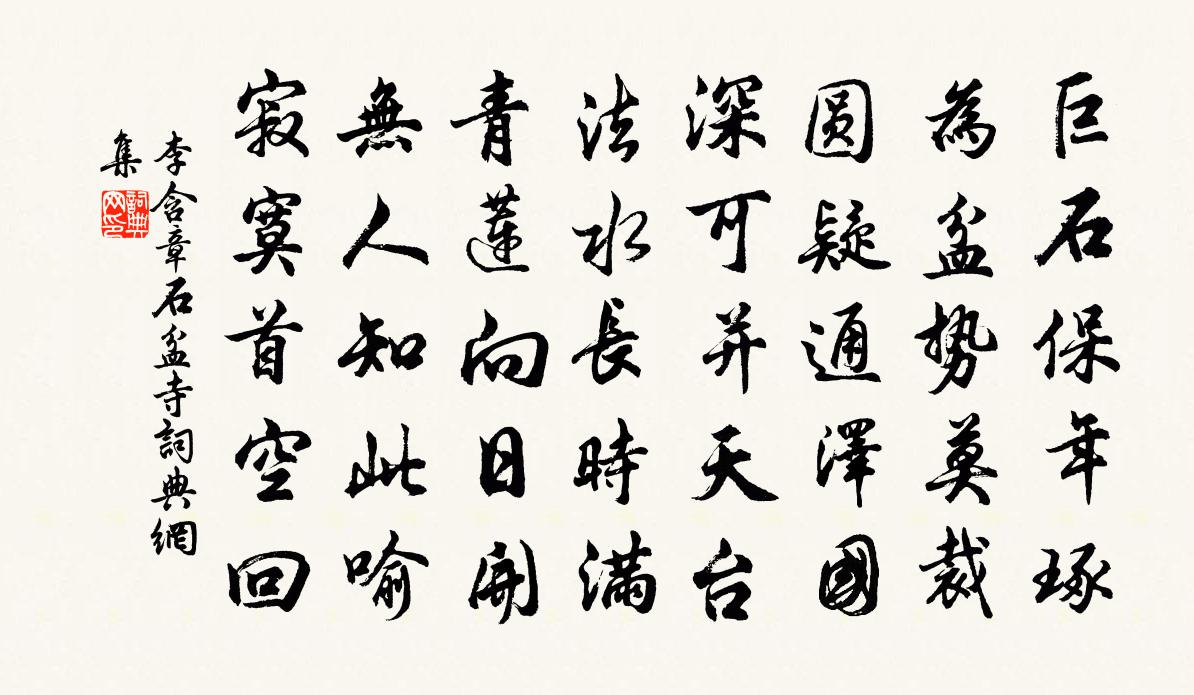 巨石保年琢
為盆勢莫裁
圓疑通澤國
深可并天台
法水長時滿
青蓮向日開
無人知此喻
寂寞首空回
李含章石盆寺詞典網
集
詞典网印